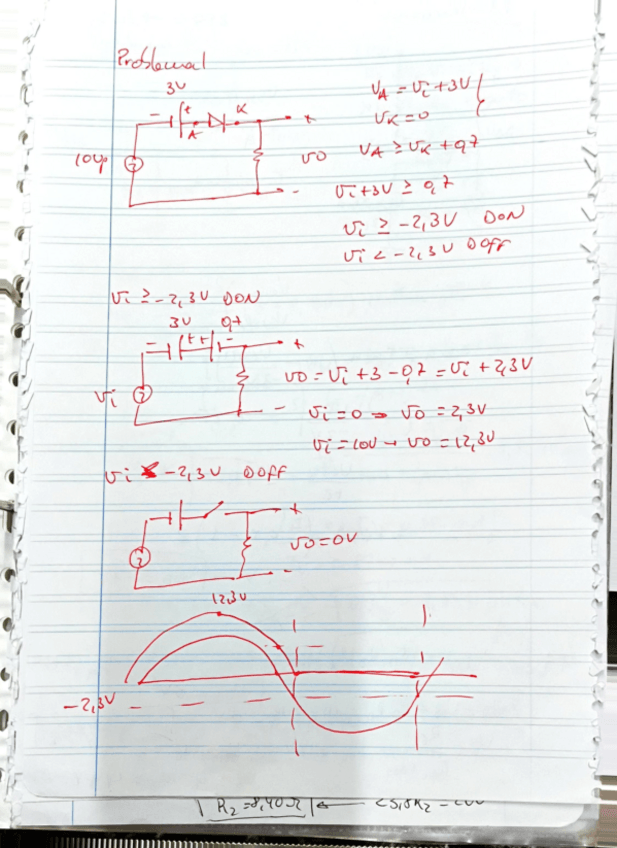 Problema 1
3V
- + A K +
10Vp vo -
VA = vi + 3V
VK = 0
VA ≥ VK + 0,7
vi + 3V ≥ 0,7
vi ≥ -2,3V DON
vi < -2,3V DOFF
vi ≥ -2,3V DON
3V 0,7
- + + - +
vi -
vo = vi + 3 - 0,7 = vi + 2,3V
vi = 0 → vo = 2,3V
vi = 10V → vo = 12,3V
vi < -2,3V DOFF
+
vo = 0V
-
12,3V
-2,3V
R2 = 8,40Ω